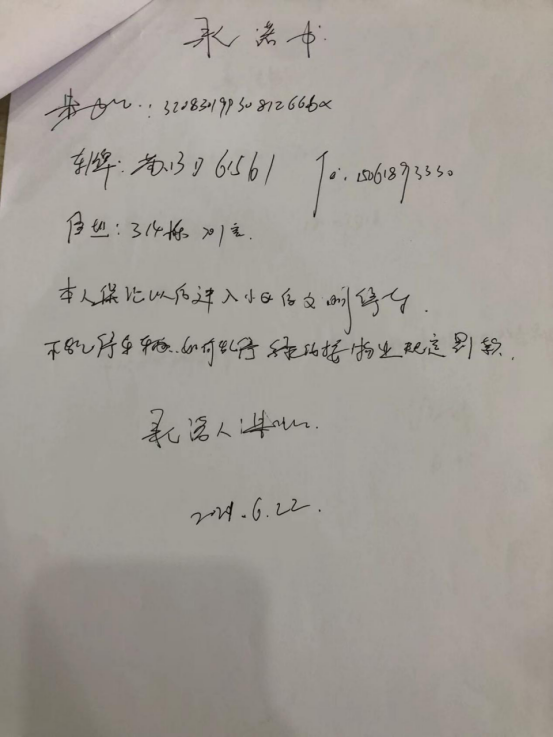 承诺书
: 32083019930812666x
车牌: 苏B 61561 Tel. 15061893330
住址: 314栋 701室
本人保证以后进入小区后文明停车.
不乱停车辆.如何乱停 按物业规定罚款.
承诺人
2021.6.22.